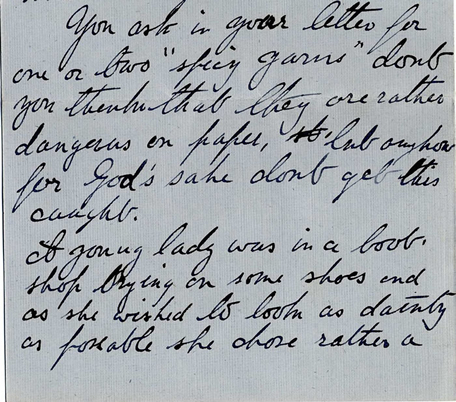 You ask in your letter for
one or two "spicy yarns" dont
you think that they are rather
dangerous on paper, but anyhow
for God's sake dont get this
caught.
A young lady was in a boot.
shop trying on some shoes and
as she wished to look as dainty
as possable she chose rather a